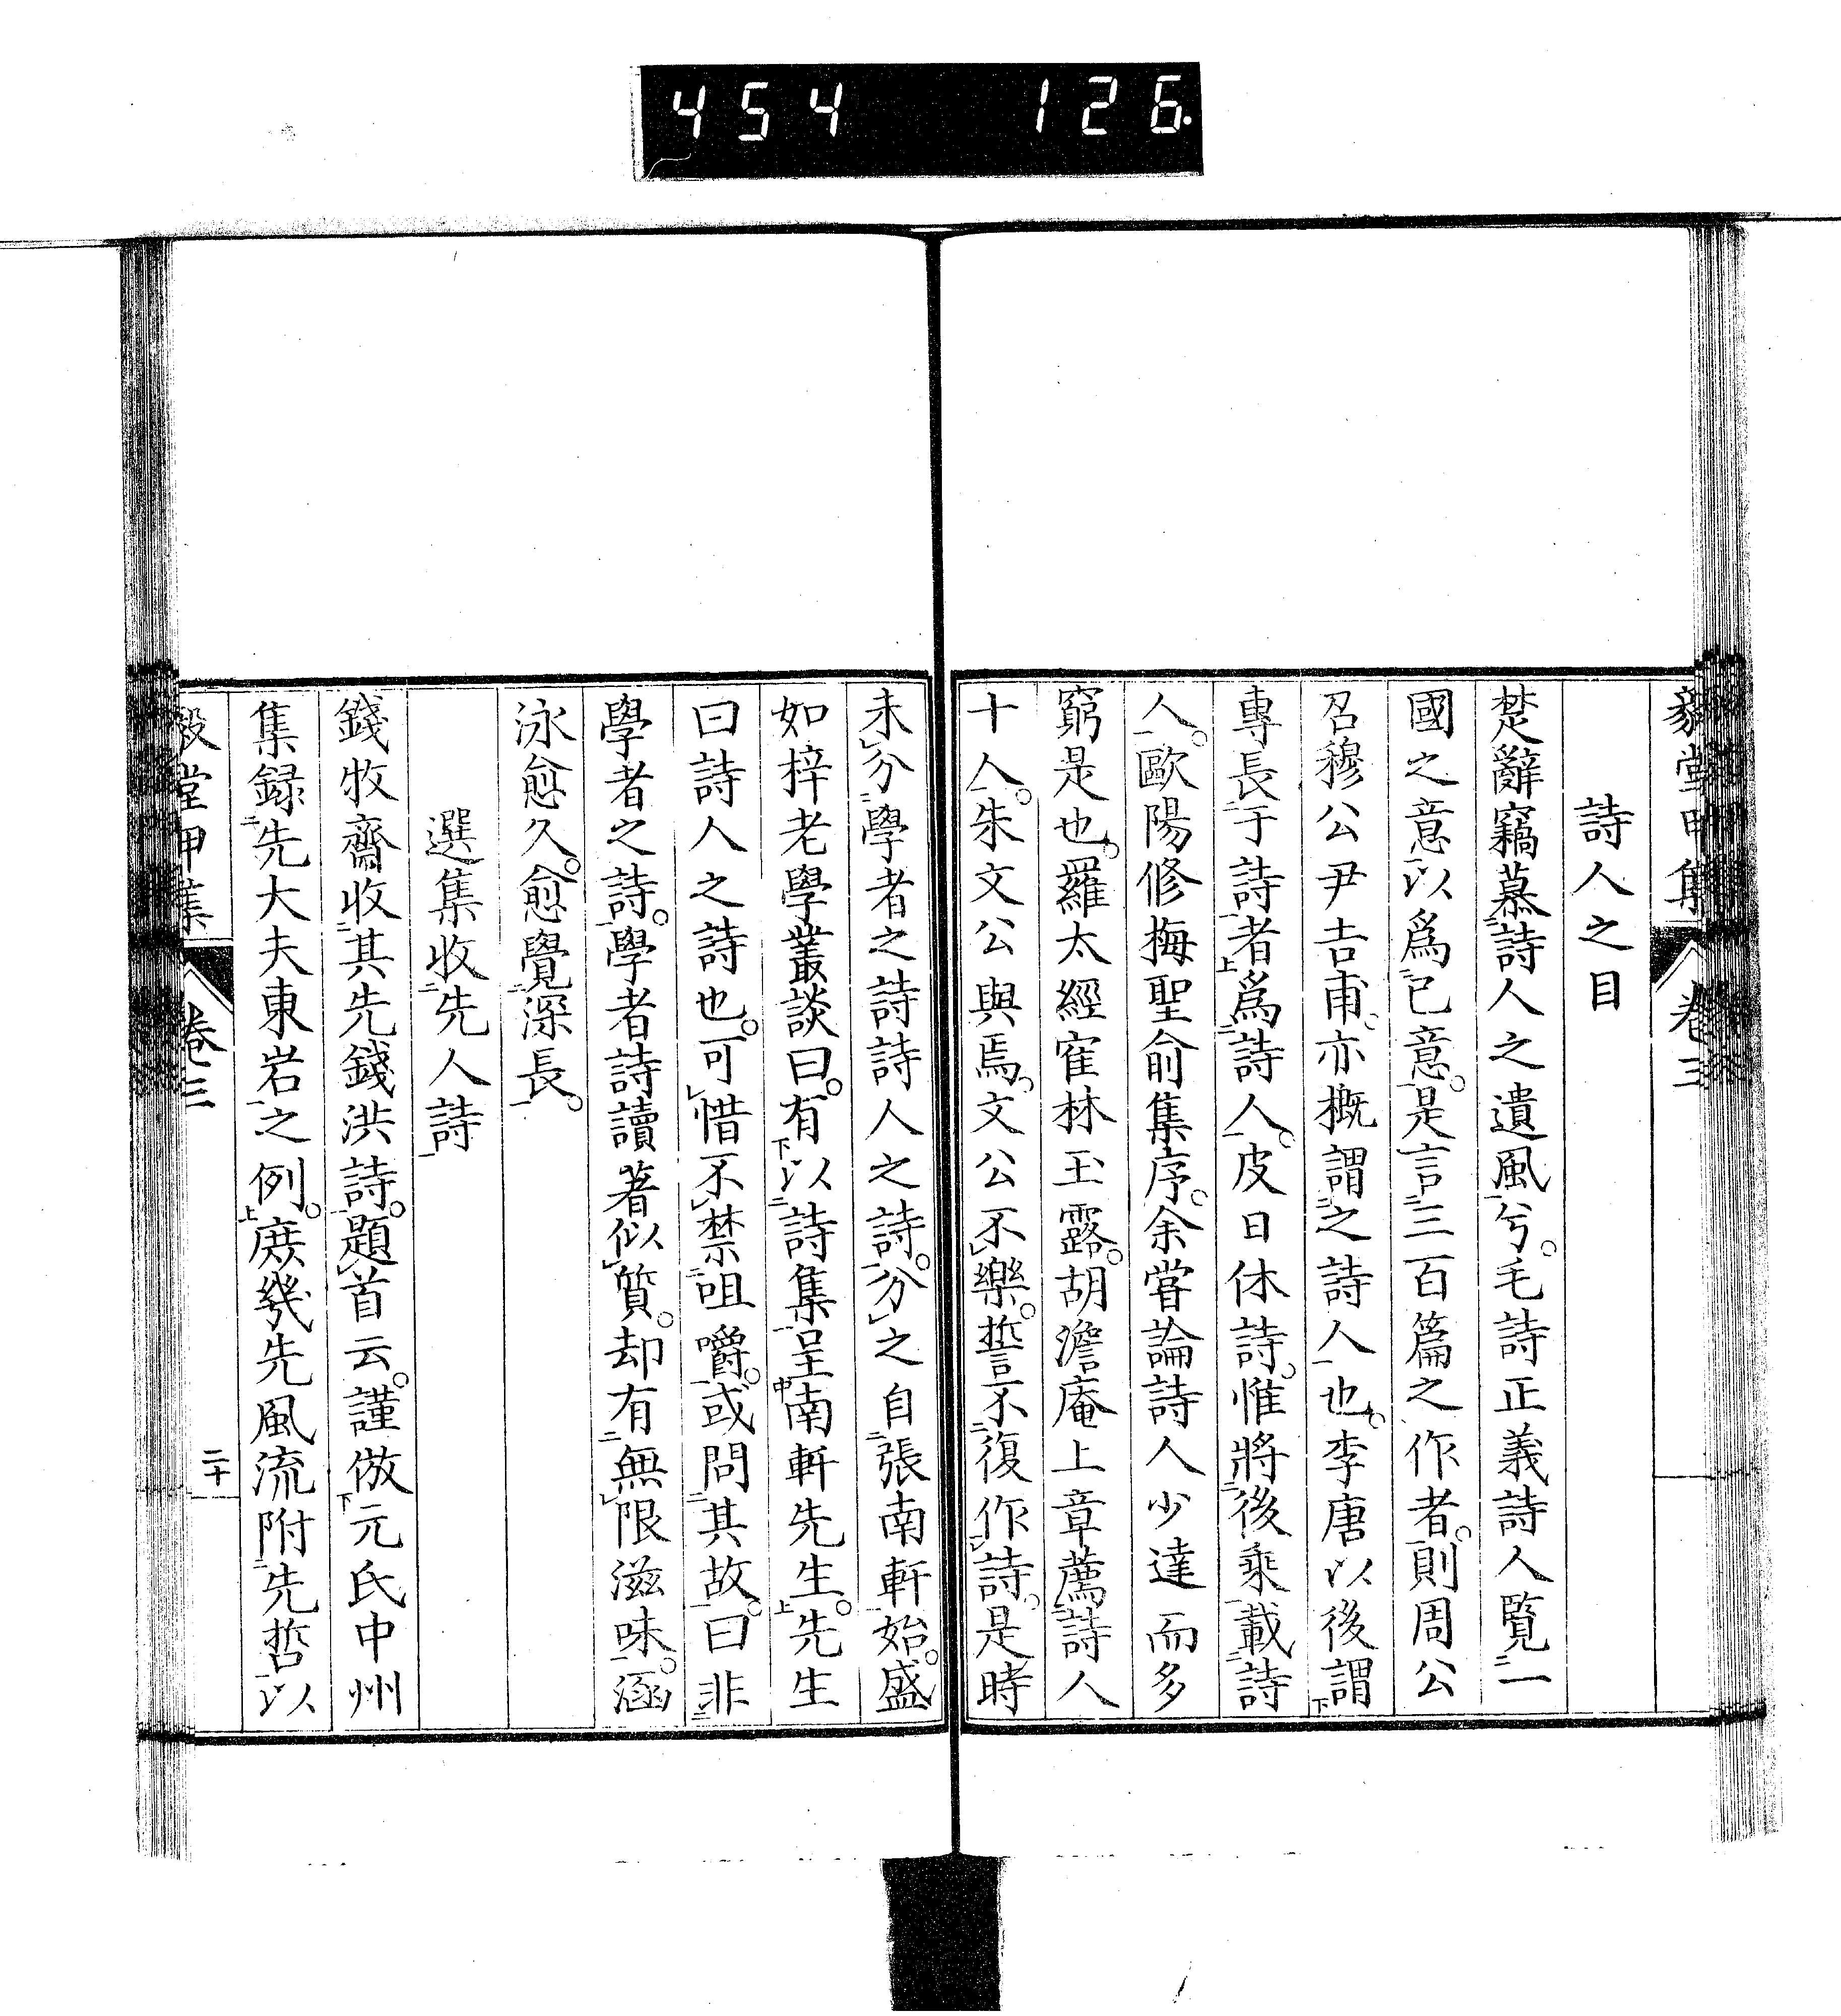 454 126
毅堂甲集 卷三
詩人之目
楚辭竊慕詩人之遺風兮。毛詩正義詩人覧一
國之意以爲已意。是言三百篇之作者。則周公
召穆公尹吉甫。亦概謂之詩人也。李唐以後謂
專長于詩者爲詩人。皮日休詩。惟將後乘載詩
人。歐陽修梅聖俞集序。余嘗論詩人少達而多
窮是也。羅太經寉林玉露。胡澹庵上章薦詩人
十人。朱文公與焉。文公不樂。誓不復作詩。是時
未分學者之詩詩人之詩。分之自張南軒始。盛
如梓老學叢談曰。有以詩集呈南軒先生。先生
曰詩人之詩也。可惜不禁咀嚼。或問其故。曰非
學者之詩。學者詩讀著似質。却有無限滋味。涵
泳愈久。愈覺深長。
選集收先人詩
錢牧齋收其先錢洪詩。題首云。謹倣元氏中州
集録先大夫東岩之例。庶幾先風流附先哲以
毅堂甲集 卷三 二十